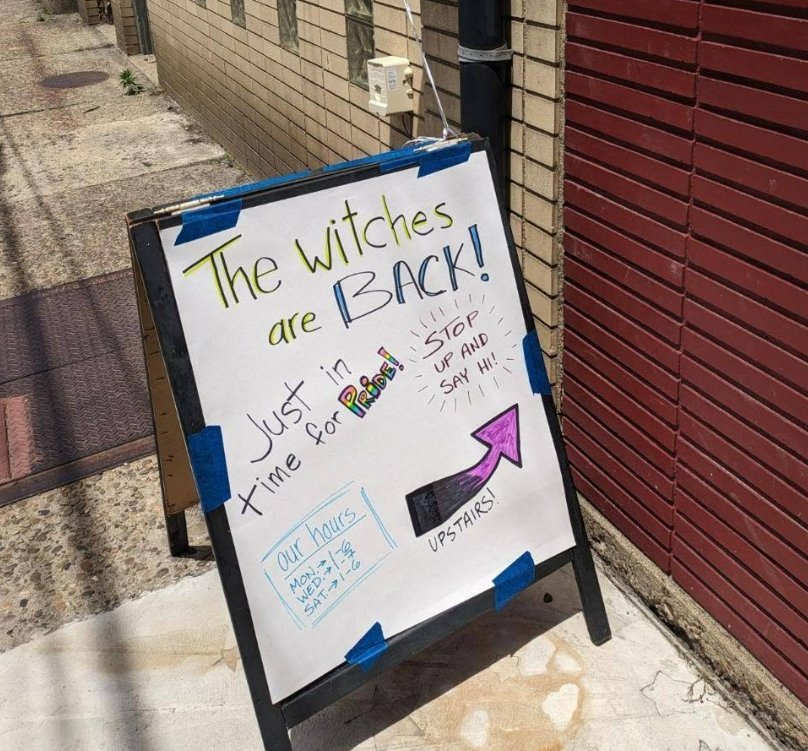 The witches
are BACK!
STOP
UP AND
SAY HI!
Just in
time for PRIDE!
UPSTAIRS!
our hours
MON.→1-6
WED.→1-7
SAT.→1-6